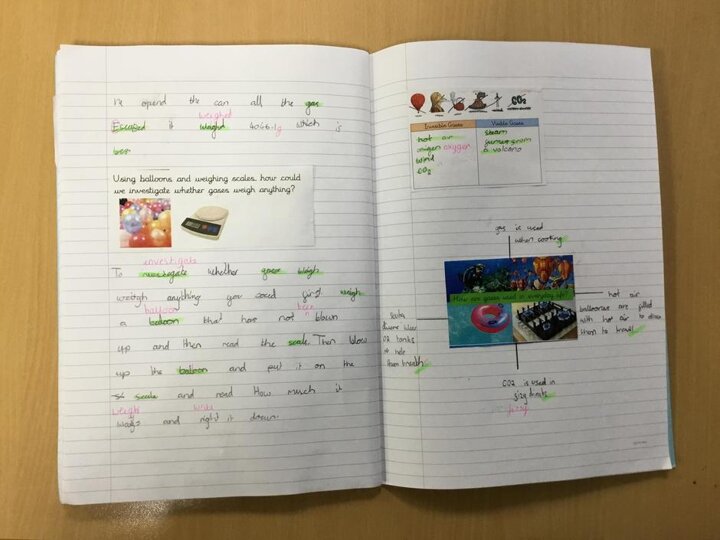 opend the can all the gas
weighed
Escaped it weighd 4046.1g which is
less
Using balloons and weighing scales, how could
we investigate whether gases weigh anything?
investigate
To whether gases weigh
weigh anything you first weigh
balloon been
a baloon that has not blown
up and then read the scale. Then blow
up the baloon and put it on the
scale and read How much it
weighs write
and right it down.
CO2
Invisible Gases Visible Gases
hot air steam
oxygen
wind a volcano
CO2
gas is used
when cooking
How are gases used in everyday life?
Scuba
divers
O2 tanks
to help
them breath
hot air
balloons are filled
with hot air to
them to travel
CO2 is used in
fizy drinks
fizzy